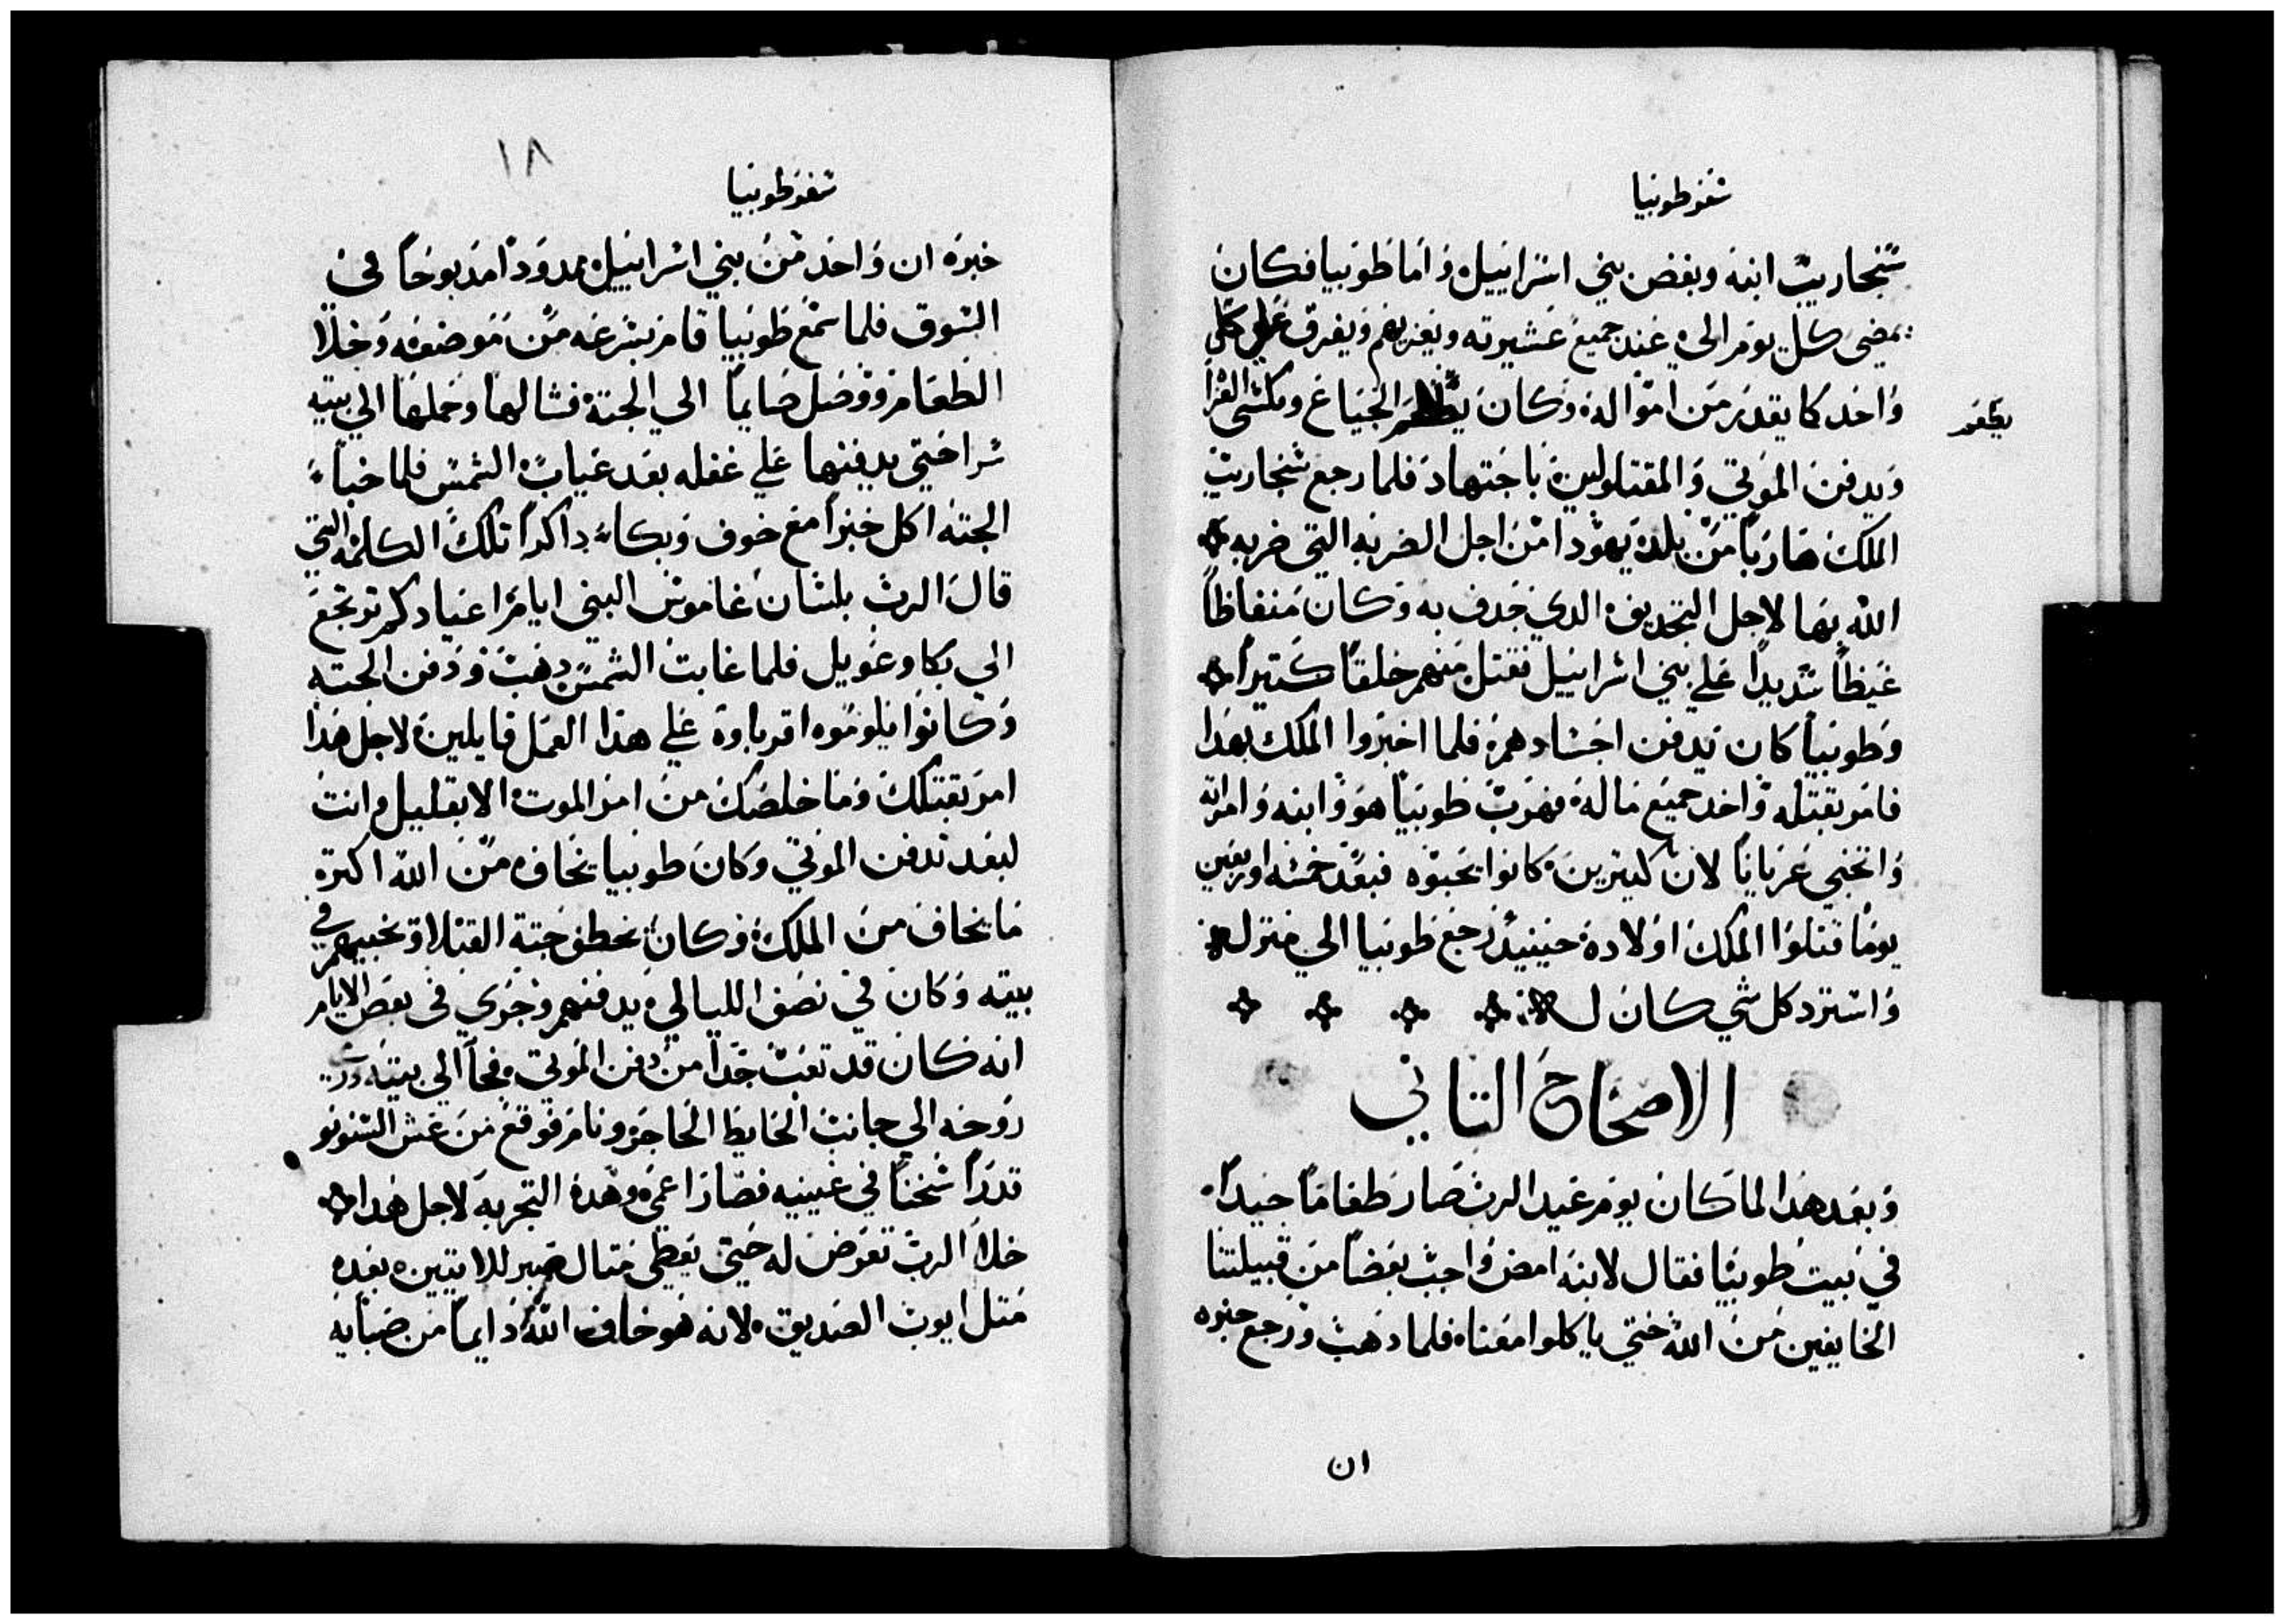 سفر طوبيا
سنحاريب ابنه وبغض بني اسراييل واما طوبيا فكان
يمضي كل يوم الي عند جميع عشيرته ويعزيهم ويفرق علي كل
واحد كما يقدر من امواله وكان يطعم الجياع ويكسي العرا
يطعم
ويدفن الموتي والمقتولين باجتهاد فلما رجع سنحاريب
الملك هاربا من بلد يهودا من اجل الضربه التي ضربه
الله بها لاجل التجديف الدي جدف به وكان منغاظا
غيظا شديدا علي بني اسراييل فقتل منهم خلقا كتيرا
وطوبيا كان يدفن اجسادهم فلما اخبروا الملك بهدا
فامر بقتله واخد جميع ماله فهرب طوبيا هو وابنه وامراته
واتخبي عريانا لان كتيرين كانوا يحبوه فبعد خمسه واربعين
يوما قتلوا الملك اولاده حينيد رجع طوبيا الي منزله
واسترد كل شي كان له
الاصحاح التاني
وبعد هدا لما كان يوم عيد الرب صار طعاما جيدا
في بيت طوبيا فقال لابنه امض واجب بعضا من قبيلتنا
الخايفين من الله حتي ياكلوا معنا فلما دهب ورجع خبره
ان
١٨
سفر طوبيا
خبره ان واحد من بني اسراييل ممدودا مدبوحا في
السوق فلما سمع طوبيا قام بسرعه من موضعه وخلا
الطعام ووصل صايما الي الجتة فشالها وحملها الي بيته
سرا حتي يدفنها علي غفله بعد غياب الشمس فلما خبا
الجته اكل خبزا مع خوف وبكاء داكرا تلك الكلمه التي
قال الرب بلسان عاموس النبي ايام اعيادكم ترجع
الي بكا وعويل فلما غابت الشمس دهب ودفن الجته
وكانوا يلوموه اقرباوه علي هدا العمل قايلين لاجل هدا
امر بقتلك وما خلصك من امر الموت الا بقليل وانت
لبعد تدفن الموتي وكان طوبيا يخاف من الله اكتر
ما يخاف من الملك وكان يخطف جتة القتلا ويخبيهم في
بيته وكان في نصف الليالي يدفنهم وجري في بعض الايام
انه كان قد تعب جدا من دفن الموتي فجا الي بيته
روحه الي جانب الحايط الحاجز ونام فوقع من عش السنونو
قدرا سخنا في عينيه فصار اعمي وهده التجربه لاجل هدا
خلا الرب تعرض له حتي يعطي متال صبر للاتيين بعده
متل ايوب الصديق لانه هو خاف الله دايما من صبايه